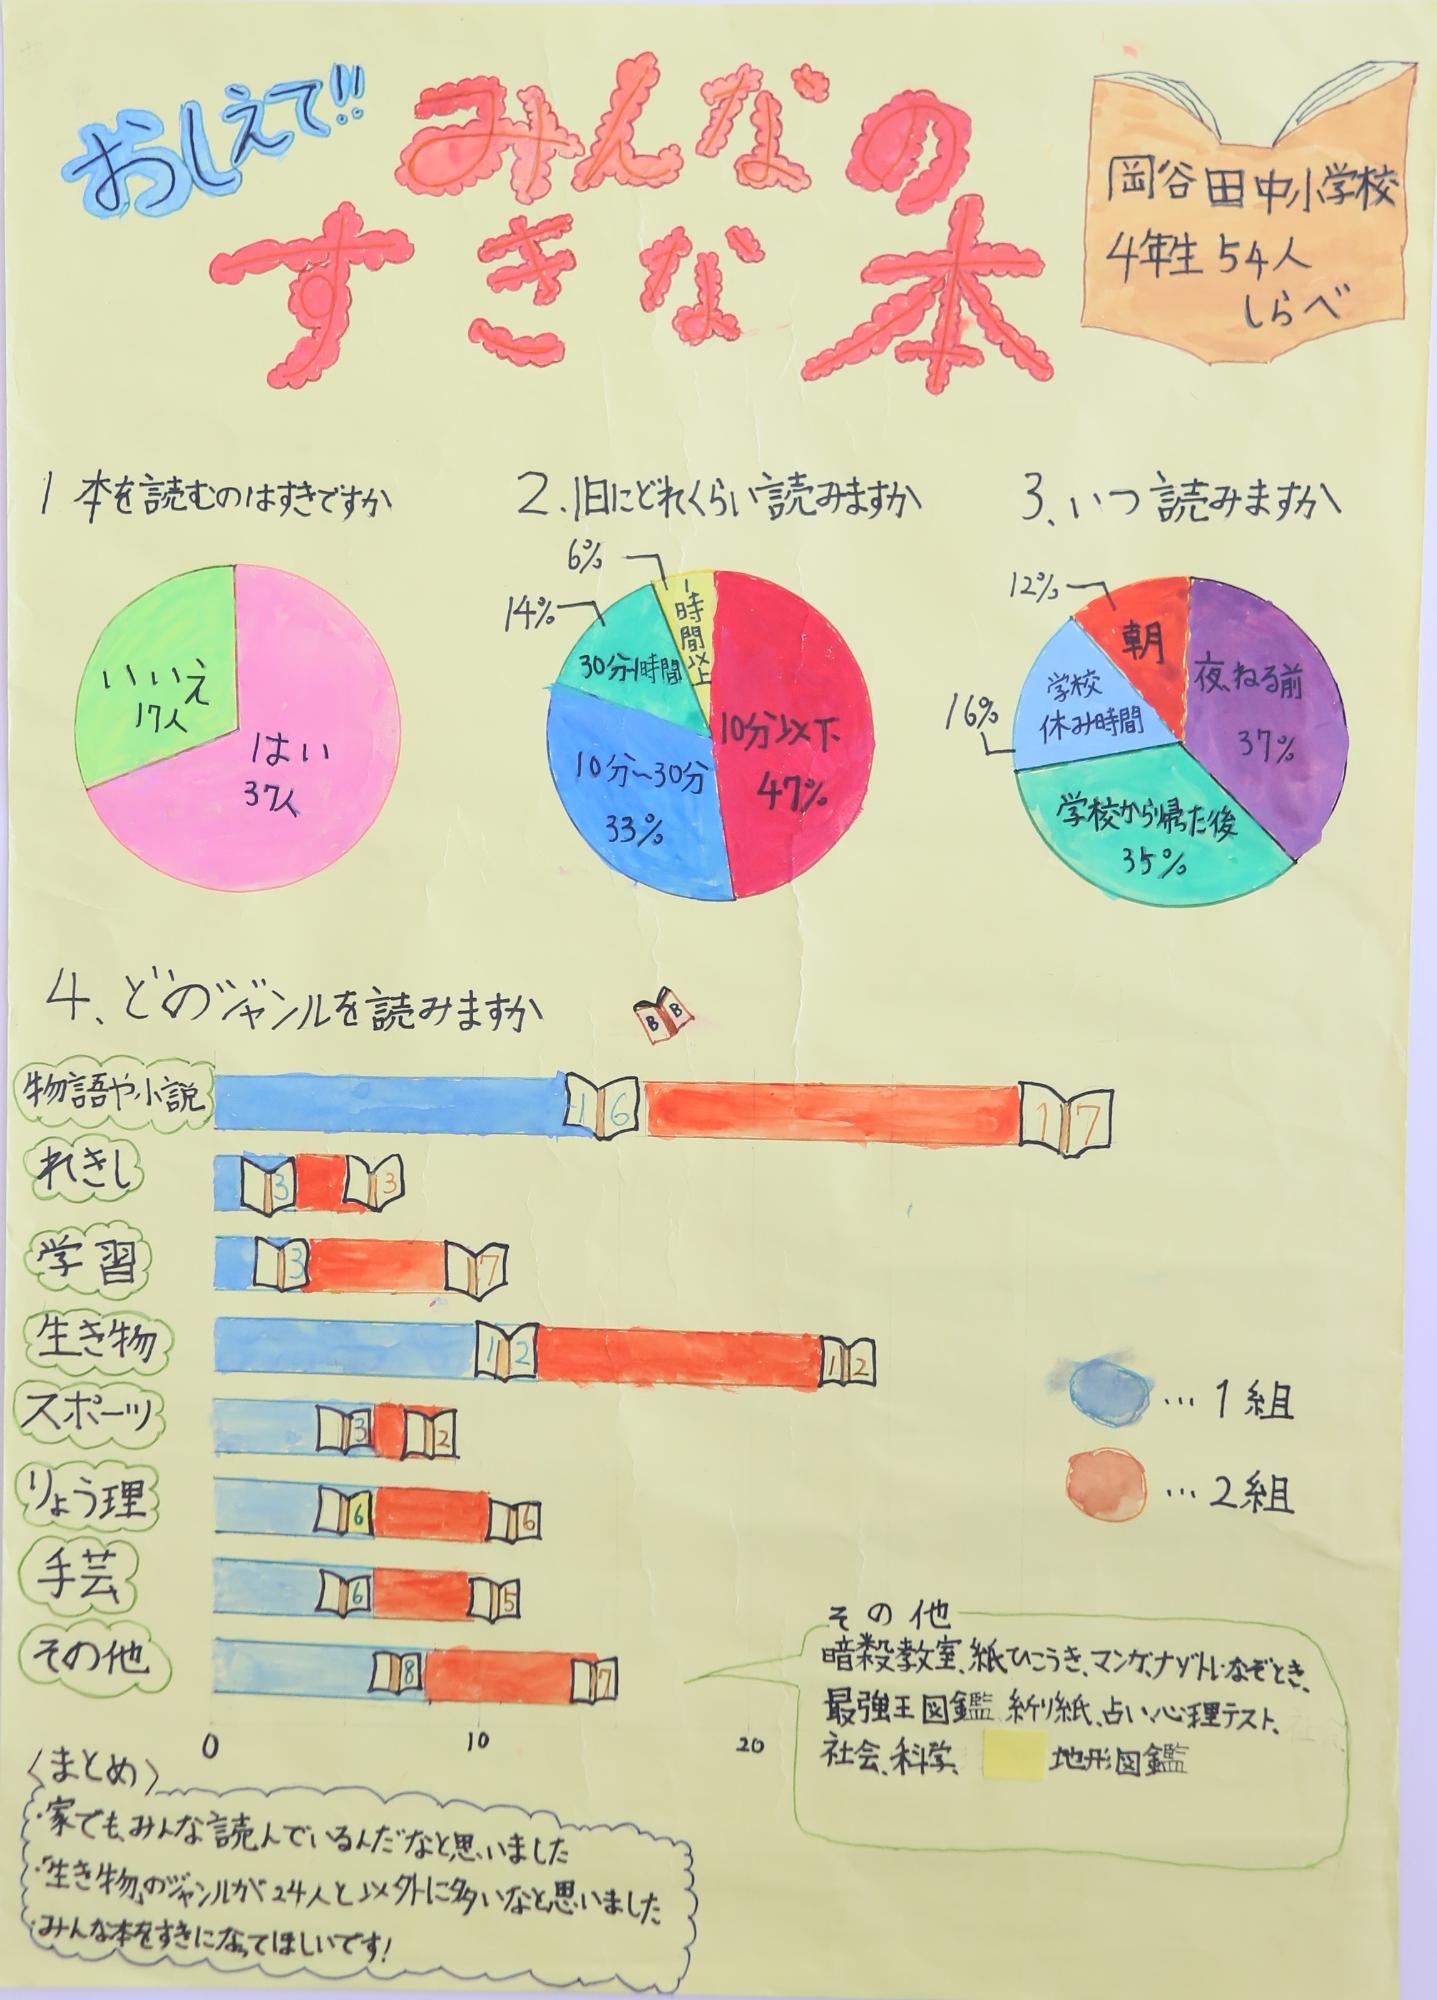 おしえて!!
みんなの
すきな本
岡谷田中小学校
4年生54人
しらべ
1 本を読むのはすきですか
いいえ
17人
はい
37人
2.1日にどれくらい読みますか
6%
14%
1時間以上
30分~1時間
10分以下
47%
10分~30分
33%
3、いつ読みますか
12%
朝
夜、ねる前
37%
16%
学校
休み時間
学校から帰た後
35%
4、どのジャンルを読みますか
B B
物語や小説 16 17
れきし 3 3
学習 3 7
生き物 12 12
スポーツ 3 2
りょう理 6 6
手芸 6 5
その他 8 7
0 10 20
…1組
…2組
その他
暗殺教室、紙ひこうき、マンガ、ナゾトレなぞとき、
最強王図鑑、折り紙、占い、心理テスト、
社会、科学、 地形図鑑
〈まとめ〉
・家でも、みんな読んでいるんだなと思いました
・「生き物」のジャンルが24人と以外に多いなと思いました
・みんな本をすきになってほしいです!